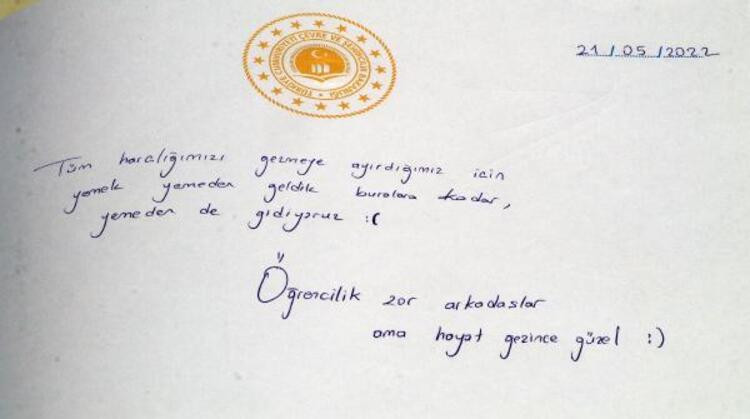 TÜRKİYE CUMHURİYETİ ÇEVRE VE ŞEHİRCİLİK BAKANLIĞI
21/05/2022
Tüm harçlığımızı gezmeye ayırdığımız için
yemek yemeden geldik buralara kadar,
yemeden de gidiyoruz :(
Öğrencilik zor arkadaşlar
ama hayat gezince güzel :)